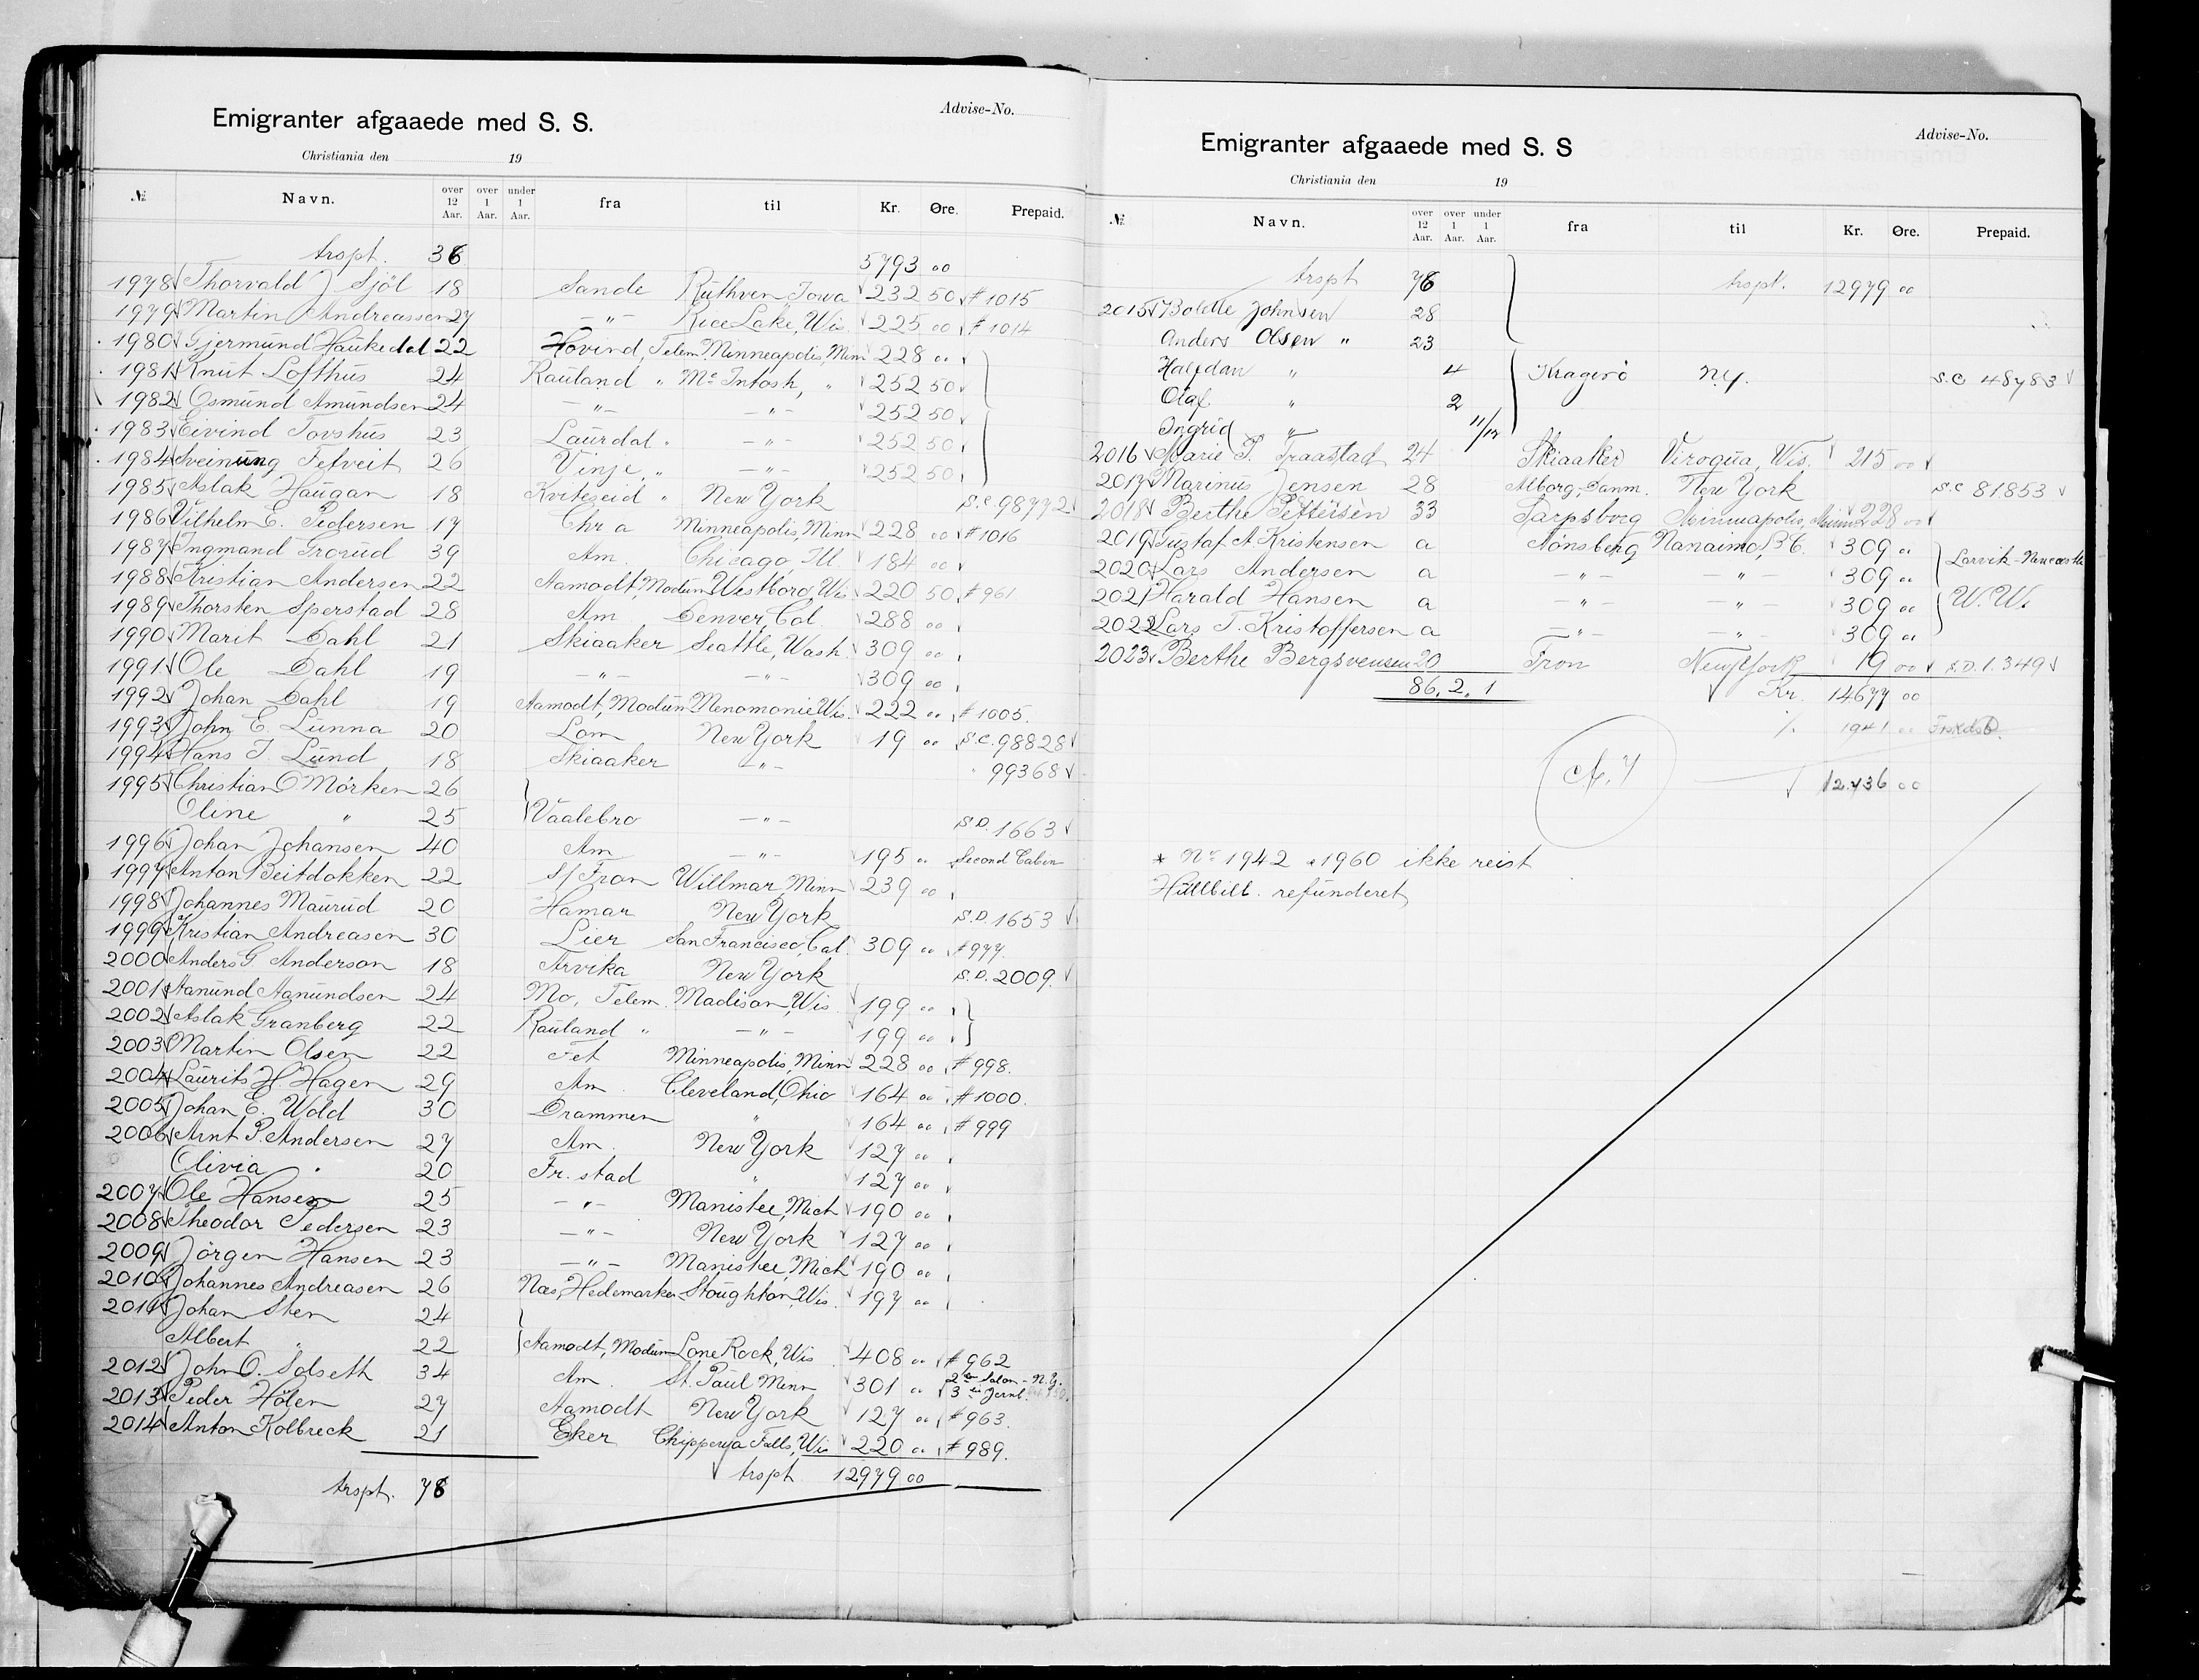 Emigranter afgaaede med S. S.
Advise-No.
Christiania den 19
№ Navn. over 12 Aar. over 1 Aar. under 1 Aar. fra til Kr. Øre. Prepaid.
trspt. 36 5793 00
1978 Thorvald J Sjöl 18 Sande Ruthven Iowa 232 50 # 1015
1979 Martin Andreassen 27 -"- Rice Lake, Wis. 225 00 # 1014
1980 Gjermund Haukedal 22 Hovind, Telem Minneapolis, Minn 228 00
1981 Knut Lofthus 24 Rauland " Mc Intosh, " 252 50
1982 Osmund Amundsen 24 -"- -"- 252 50
1983 Eivind Tovshus 23 Laurdal " -"- 252 50
1984 Sveinung Fetveit 26 Vinje " -"- 252 50
1985 Aslak Haugan 18 Kviteseid " New York S.C. 98772
1986 Vilhelm E. Pedersen 17 Chr a Minneapolis, Minn 228 00 # 1016
1987 Ingmand Grorud 39 Am. Chicago, Ill. 184 00
1988 Kristian Andersen 22 Aamodt, Modum Westboro, Wis 220 50 # 961
1989 Thorsten Sperstad 28 Am Denver, Col. 288 00
1990 Marit Dahl 21 Skiaaker Seattle, Wash. 309 00
1991 Ole Dahl 19 -"- -"- 309 00
1992 Johan Dahl 19 Aamodt, Modum Menomonie Wis. 222 00 # 1005.
1993 John E. Lunna 20 Lom New York 19 00 S.C. 98828
1994 Hans J. Lund 18 Skiaaker -"- " 99368
1995 Christian O Mörken 26
Oline " 25 Vaalebro -"- S.D. 1663
1996 Johan Johansen 40 Am -"- 195 00 Second Cabin
1997 Anton Beitdokken 22 S/Fron Willmar, Minn 239 00
1998 Johannes Maurud 20 Hamar New York S.D. 1653
1999 Kristian Andreasen 30 Lier San Francisco, Cal. 309 00 # 977.
2000 Anders G Anderson 18 Arvika New York S.D. 2009.
2001 Aanund Aanundsen 24 Mo, Telem. Madison, Wis 199 00
2002 Aslak Granberg 22 Rauland " -"- 199 00
2003 Martin Olsen 22 Fet Minneapolis, Minn 228 00 # 998.
2004 Laurits H. Hagen 29 Am. Cleveland, Ohio 164 00 # 1000.
2005 Johan E. Wold 30 Drammen " 164 00 # 999
2006 Arnt P. Andersen 27 Am. New York 127 00
Olivia " 20 Fr. stad " 127 00
2007 Ole Hansen 25 -"- Manistee, Mich 190 00
2008 Theodor Pedersen 23 -"- New York 127 00
2009 Jörgen Hansen 23 -"- Manistee, Mich 190 00
2010 Johannes Andreasen 26 Næs, Hedemarken Stoughton, Wis. 197 00
2011 Johan Sten 24
Albert " 22 Aamodt, Modum Lone Rock, Wis 408 00 # 962
2012 John O. Solseth 34 Am St. Paul Minn 301 00 2den Salon - N.Y. 3die Jernb.
2013 Peder Hölen 27 Aamodt New York 127 00 # 963.
2014 Anton Kolbreck 21 Eker Chippewa Falls, Wis 220 00 # 989.
trspt. 12979 00
trspt. 76
Emigranter afgaaede med S. S
Advise-No.
Christiania den 19
№ Navn. over 12 Aar. over 1 Aar. under 1 Aar. fra til Kr. Øre. Prepaid.
trspt 76 trspt. 12979 00
2015 Bolette Johnsen 28
Anders Olsen " 23
Halfdan " 4 Kragerö N.Y. S.C 48783
Olaf " 2
Ingrid " 11/12
2016 Marie P. Traastad 24 Skiaaker Viroqua, Wis. 215 00
2017 Marinus Jensen 28 Alborg, Danm. New York S.C 81853
2018 Berthe Pettersen 33 Sarpsborg Minneapolis, Minn 228 00
2019 Gustaf A. Kristensen a Tönsberg Nanaimo, B.C. 309 00 Larvik-Newcastle
2020 Lars Andersen a -"- -"- 309 00
2021 Harald Hansen a -"- -"- 309 00 W. W.
2022 Lars T. Kristoffersen a -"- -"- 309 00
2023 Berthe Bergsvensen 20 Fron New York 19 00 S.D. 1.349
86. 2. 1 Kr. 14677 00
1941 00
A. 7
12.736 00
* No 1942 & 1960 ikke reist
Hullbill. refunderet